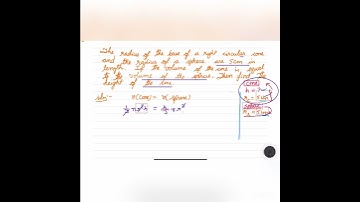 The radius of the base of a right circular cone
and the radius of a sphere are 5cm in
length. If the volume of the cone is equal
to the volume of the sphere. Then find the
height of the cone
Soln:- v(Cone) = v(Sphere)
1/3 πr²h = 4/3 πr³
Cone
h = ?